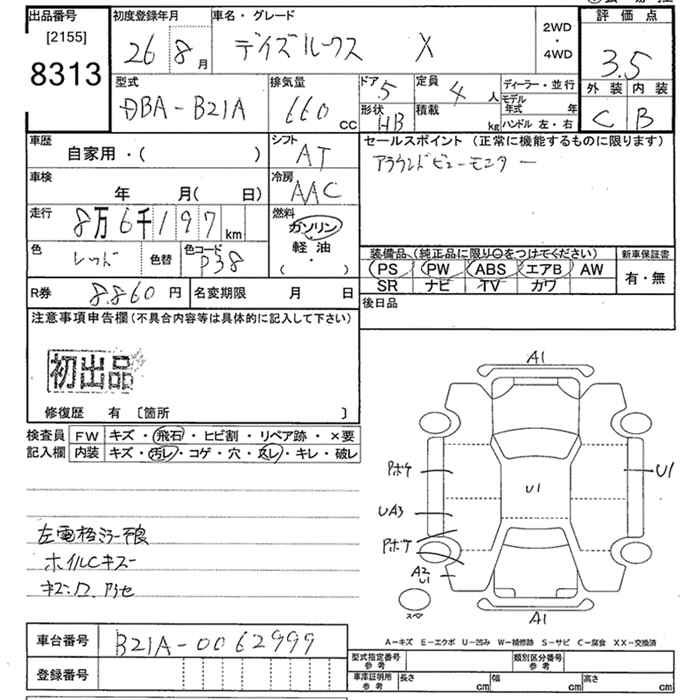 出品番号
[2155]
8313
初度登録年月
26 8月
車名・グレード
デイズルークス X
2WD
・
4WD
評価点
3.5
外装 内装
C B
型式
DBA-B21A
排気量
660 cc
ドア 5
形状 HB
定員 4 人
積載 kg
ディーラー・並行
モデル年式 年
ハンドル 左・右
車歴
自家用・( )
シフト
AT
セールスポイント(正常に機能するものに限ります)
アラウンドビューモニター
車検
年 月( 日)
冷房
AAC
走行
8万6千197km
燃料
ガソリン
軽油
( ・ )
色
レッド
色替
色コード
装備品(純正品に限り○をつけてください)
PS PW ABS エアB AW
SR ナビ TV カワ
新車保証書
有・無
R券 8.860円
名変期限 月 日
後日品
注意事項申告欄(不具合内容等は具体的に記入して下さい)
初出品
修復歴 有 [箇所 ]
検査員記入欄
FW キズ・飛石・ヒビ割・リペア跡・×要
内装 キズ・汚レ・コゲ・穴・スレ・キレ・破レ
A1
Pホケ
U1
U1
UA3
Pボケ
A2
U1
スペア
A1
左電格ミラー不良
ホイルCキズー
A-キズ E-エクボ U-凹み W-補修跡 S-サビ C-腐食 XX-交換済
車台番号 B21A-0062999
登録番号
型式指定番号 参考
類別区分番号 参考
車庫証明用 参考
長さ cm 幅 cm 高さ cm